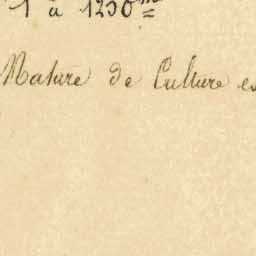 1 à 1250m
Nature de Culture es